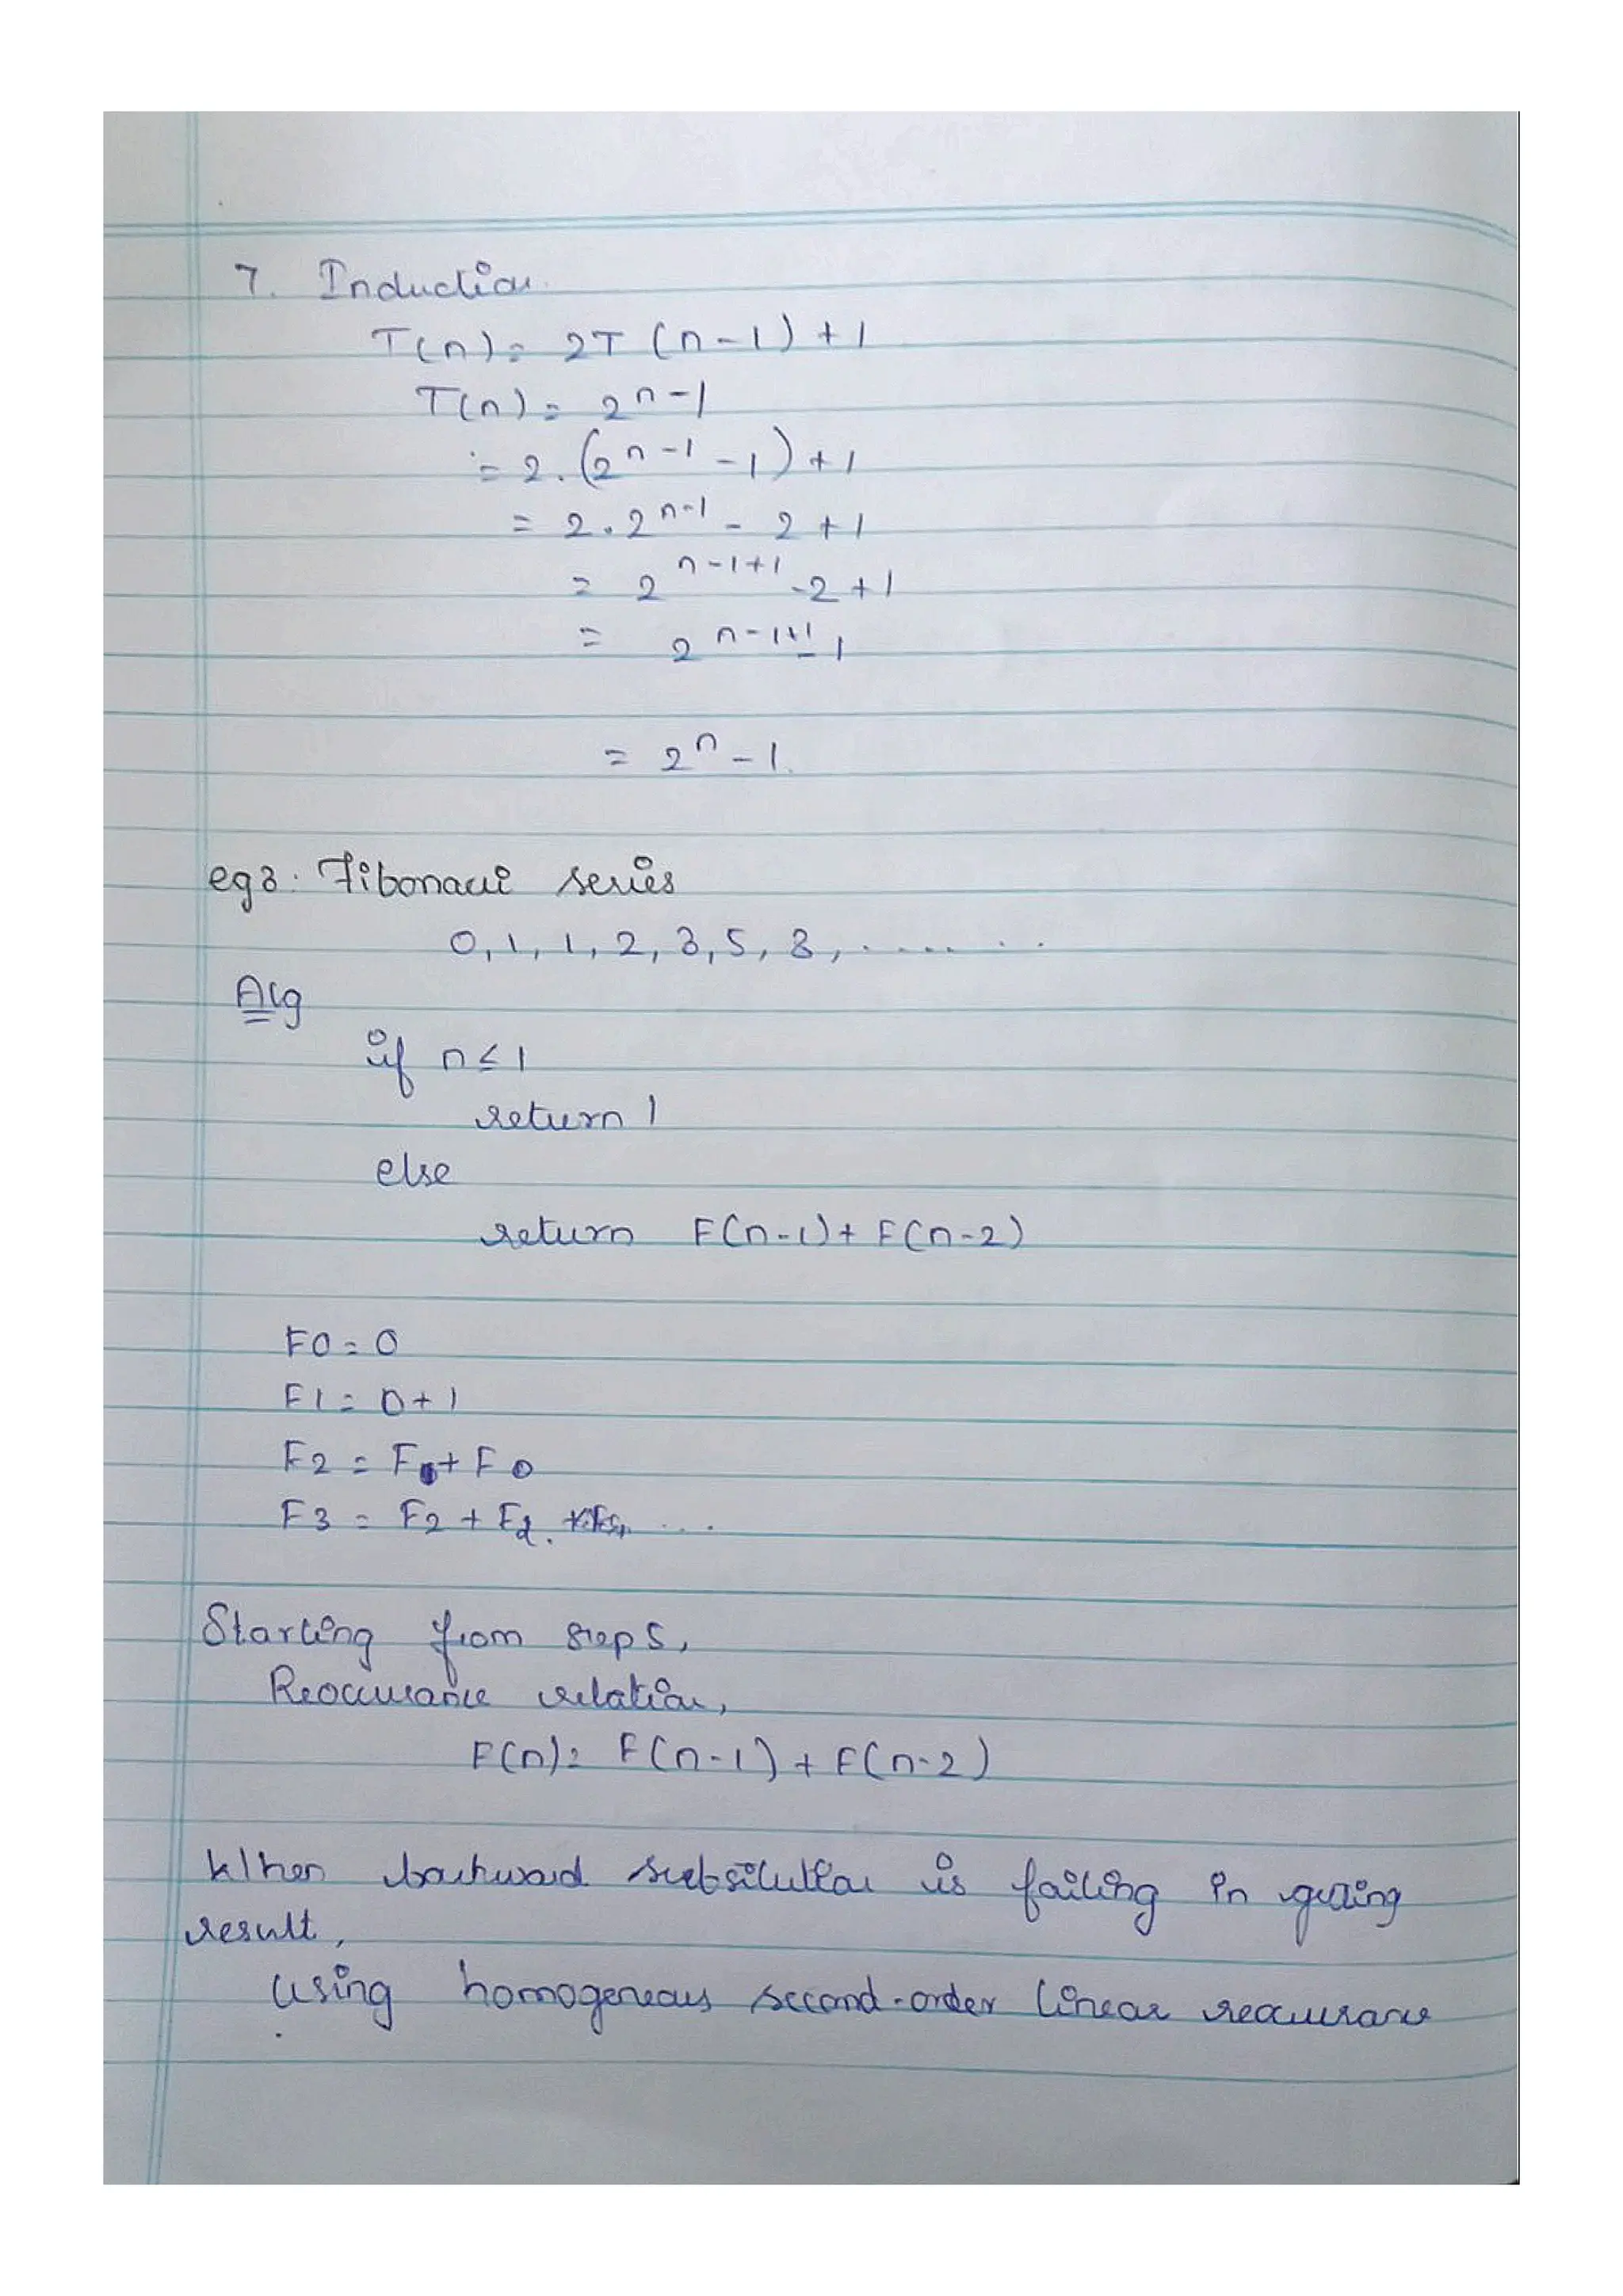 7. Induction.
T(n) = 2T (n-1) + 1
T(n) = 2^n - 1
= 2. (2^n-1 - 1) + 1
= 2 . 2^n-1 - 2 + 1
= 2^n-1+1 - 2 + 1
= 2^n-1+1 - 1
= 2^n - 1.
eg 3. Fibonacci series
0, 1, 1, 2, 3, 5, 8, ........
Alg
if n ≤ 1
return 1
else
return F(n-1) + F(n-2)
F0 = 0
F1 = 0 + 1
F2 = F1 + F0
F3 = F2 + F1 ...
Starting from step 5,
Reoccurance relation,
F(n) = F(n-1) + F(n-2)
When backward substitution is failing in getting
result,
using homogeneous second-order linear reoccurance